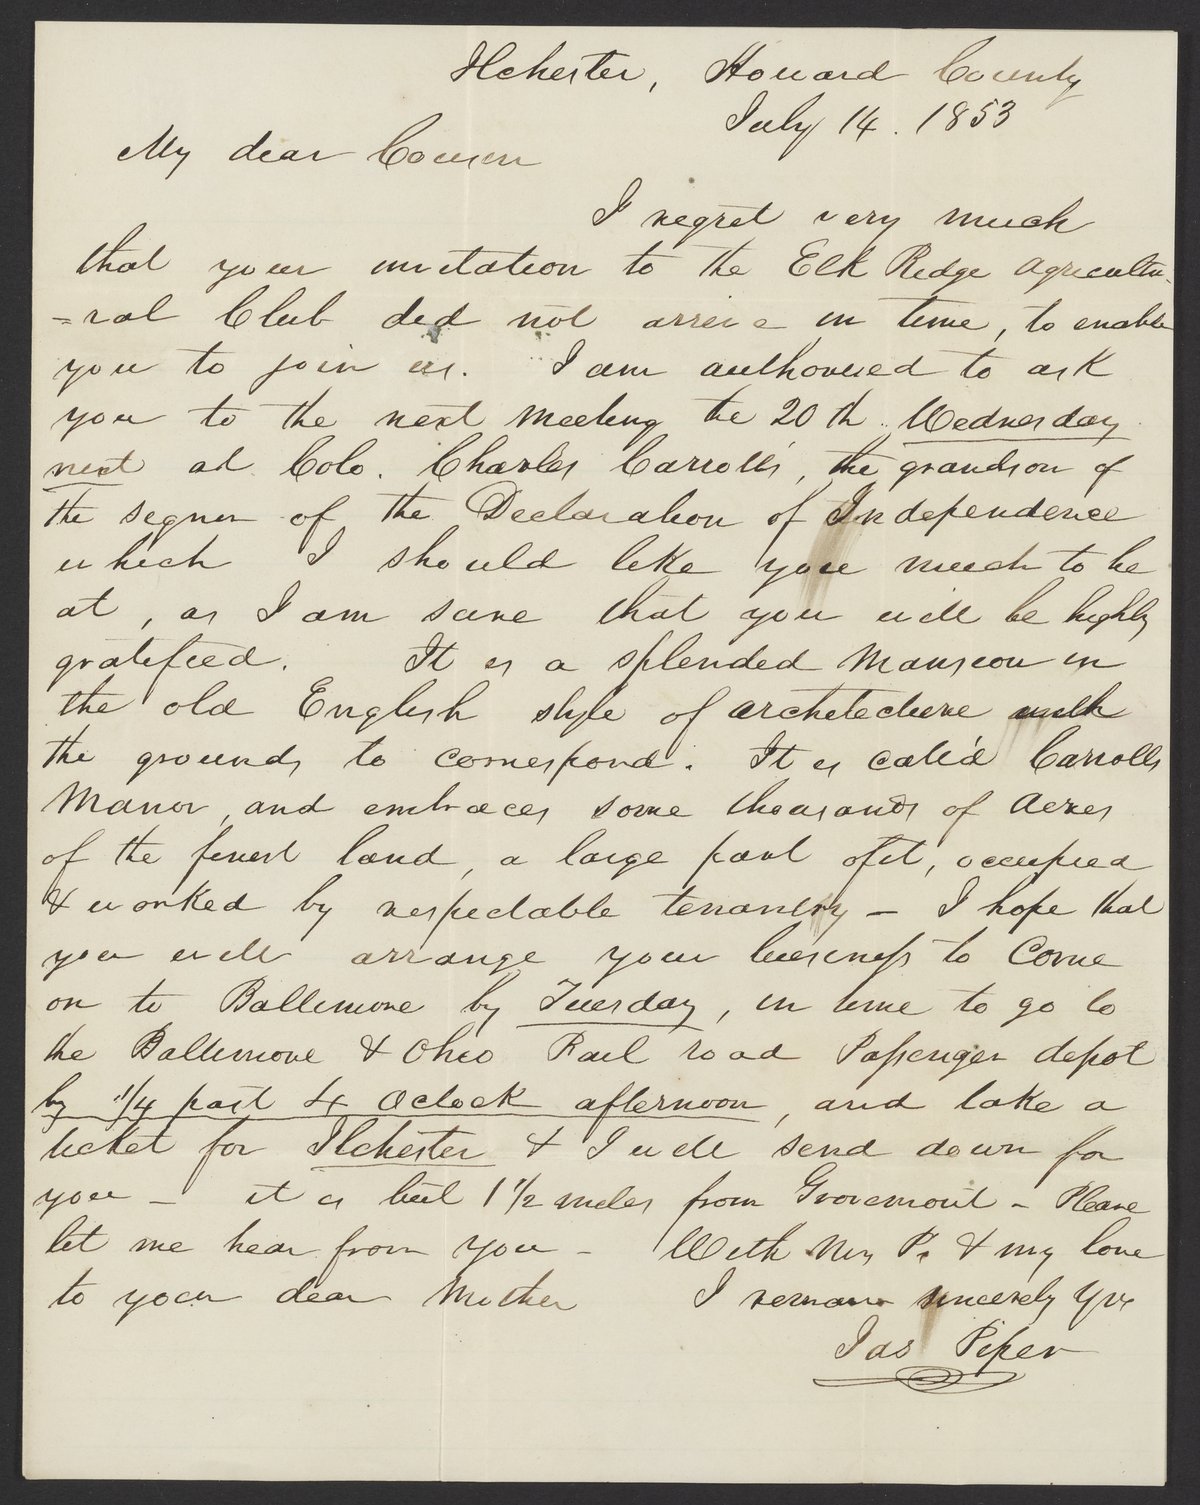 Ilchester, Howard County
July 14. 1853
My dear Cousin
I regret very much
that your invitation to the Elk Ridge Agricultu-
=ral Club did not arrive in time, to enable
you to join us. I am authorised to ask
you to the next meeting the 20th, Wednesday
next at Colo. Charles Carroll's, the grandson of
the signer of the Declaration of Independence
which I should like you much to be
at, as I am sure that you will be highly
gratified. It is a splendid Mansion in
the old English style of architecture with
the grounds to correspond. It is call'd Carrolls
Manor, and embraces some thousands of Acres
of the finest land, a large part of it, occupied
& worked by respectable tenantry – I hope that
you will arrange your business to Come
on to Baltimore by Tuesday, in time to go to
the Baltimore & Ohio Rail road Passenger depot
by 1/4 past 4 Oclock afternoon, and take a
ticket for Ilchester & I will send down for
you – it is but 1 1/2 miles from Grovemont – Please
let me hear from you – With Mrs P. & my love
to your dear Mother I remain sincerely Yrs
Jas Piper